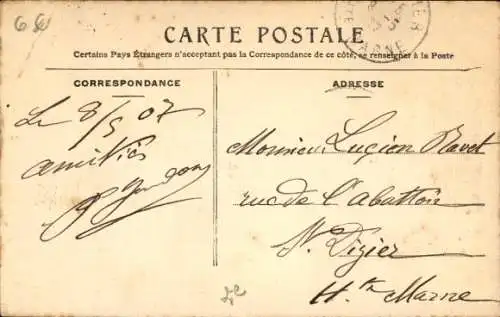 CARTE POSTALE
Certains Pays Étrangers n'acceptant pas la Correspondance de ce côté, se renseigner à la Poste
CORRESPONDANCE
ADRESSE
Le 8/5 07
Amitiés
Monsieur Lucien Ravet
rue de l'abattoir
St. Dizier
Hte Marne